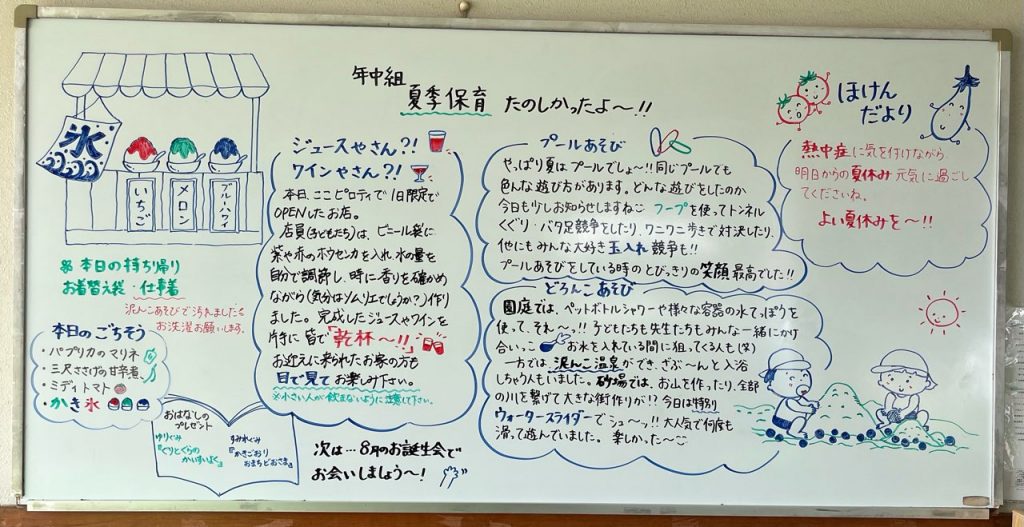 年中組
夏季保育 たのしかったよ〜!!
氷
いちご
メロン
ブルーハワイ
本日の持ち帰り
お着替え袋・仕事着
泥んこあそびで汚れました
お洗濯お願いします。
本日のごちそう
・パプリカのマリネ
・三尺ささげの甘辛煮
・ミディトマト
・かき氷
おはなしの
プレゼント
ゆりぐみ
『ぐりとぐらの
かいすいよく』
すみれぐみ
『かきごおり
おまちどおさま』
ジュースやさん?!
ワインやさん?!
本日、ここピロティで1日限定で
OPENしたお店。
店員(子どもたち)は、ビニール袋に
紫や赤のホウセンカを入れ、水の量を
自分で調節し、時に香りを確かめ
ながら(気分はソムリエでしょうか?)作り
ました。完成したジュースやワインを
片手に皆で「乾杯〜!!」
お迎えに来られたお家の方も
目で見てお楽しみ下さい。
※小さい人が飲まないように注意して下さい。
次は…8月のお誕生会で
お会いしましょう〜!
プールあそび
やっぱり夏はプールでしょ〜!!同じプールでも
色んな遊び方があります。どんな遊びをしたのか
今日も少しお知らせしますね フープを使ってトンネル
くぐり・バタ足競争をしたり、ワニワニ歩きで対決したり、
他にもみんな大好き玉入れ競争も!!
プールあそびをしている時のとびっきりの笑顔最高でした!!
どろんこあそび
園庭では、ペットボトルシャワーや様々な容器の水てっぽうを
使って、それ〜っ!!子どもたちも先生たちもみんな一緒にかけ
合いっこ お水を入れている間に狙ってくる人も(笑)
一方では、泥んこ温泉ができ、ざぶ〜んと入浴
しちゃう人もいました。砂場では、お山を作ったり、全部
の川を繋げて大きな街作りが!?今日は特別
ウォータースライダーでシュ〜ッ!!大人気で何度も
滑って遊んでいました。楽しかった〜
ほけん
だより
熱中症に気を付けながら
明日からの夏休み元気に過ごし
てくださいね。
よい夏休みを〜!!